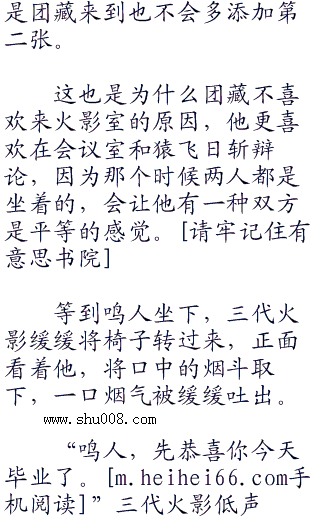 是团藏来到也不会多添加第
二张。
这也是为什么团藏不喜
欢来火影室的原因，他更喜
欢在会议室和猿飞日斩辩
论，因为那个时候两人都是
坐着的，会让他有一种双方
是平等的感觉。[请牢记住有
意思书院]
等到鸣人坐下，三代火
影缓缓将椅子转过来，正面
看着他，将口中的烟斗取
下，一口烟气被缓缓吐出。
www.shu008.com
“鸣人，先恭喜你今天
毕业了。[m.heihei66.com手
机阅读]”三代火影低声